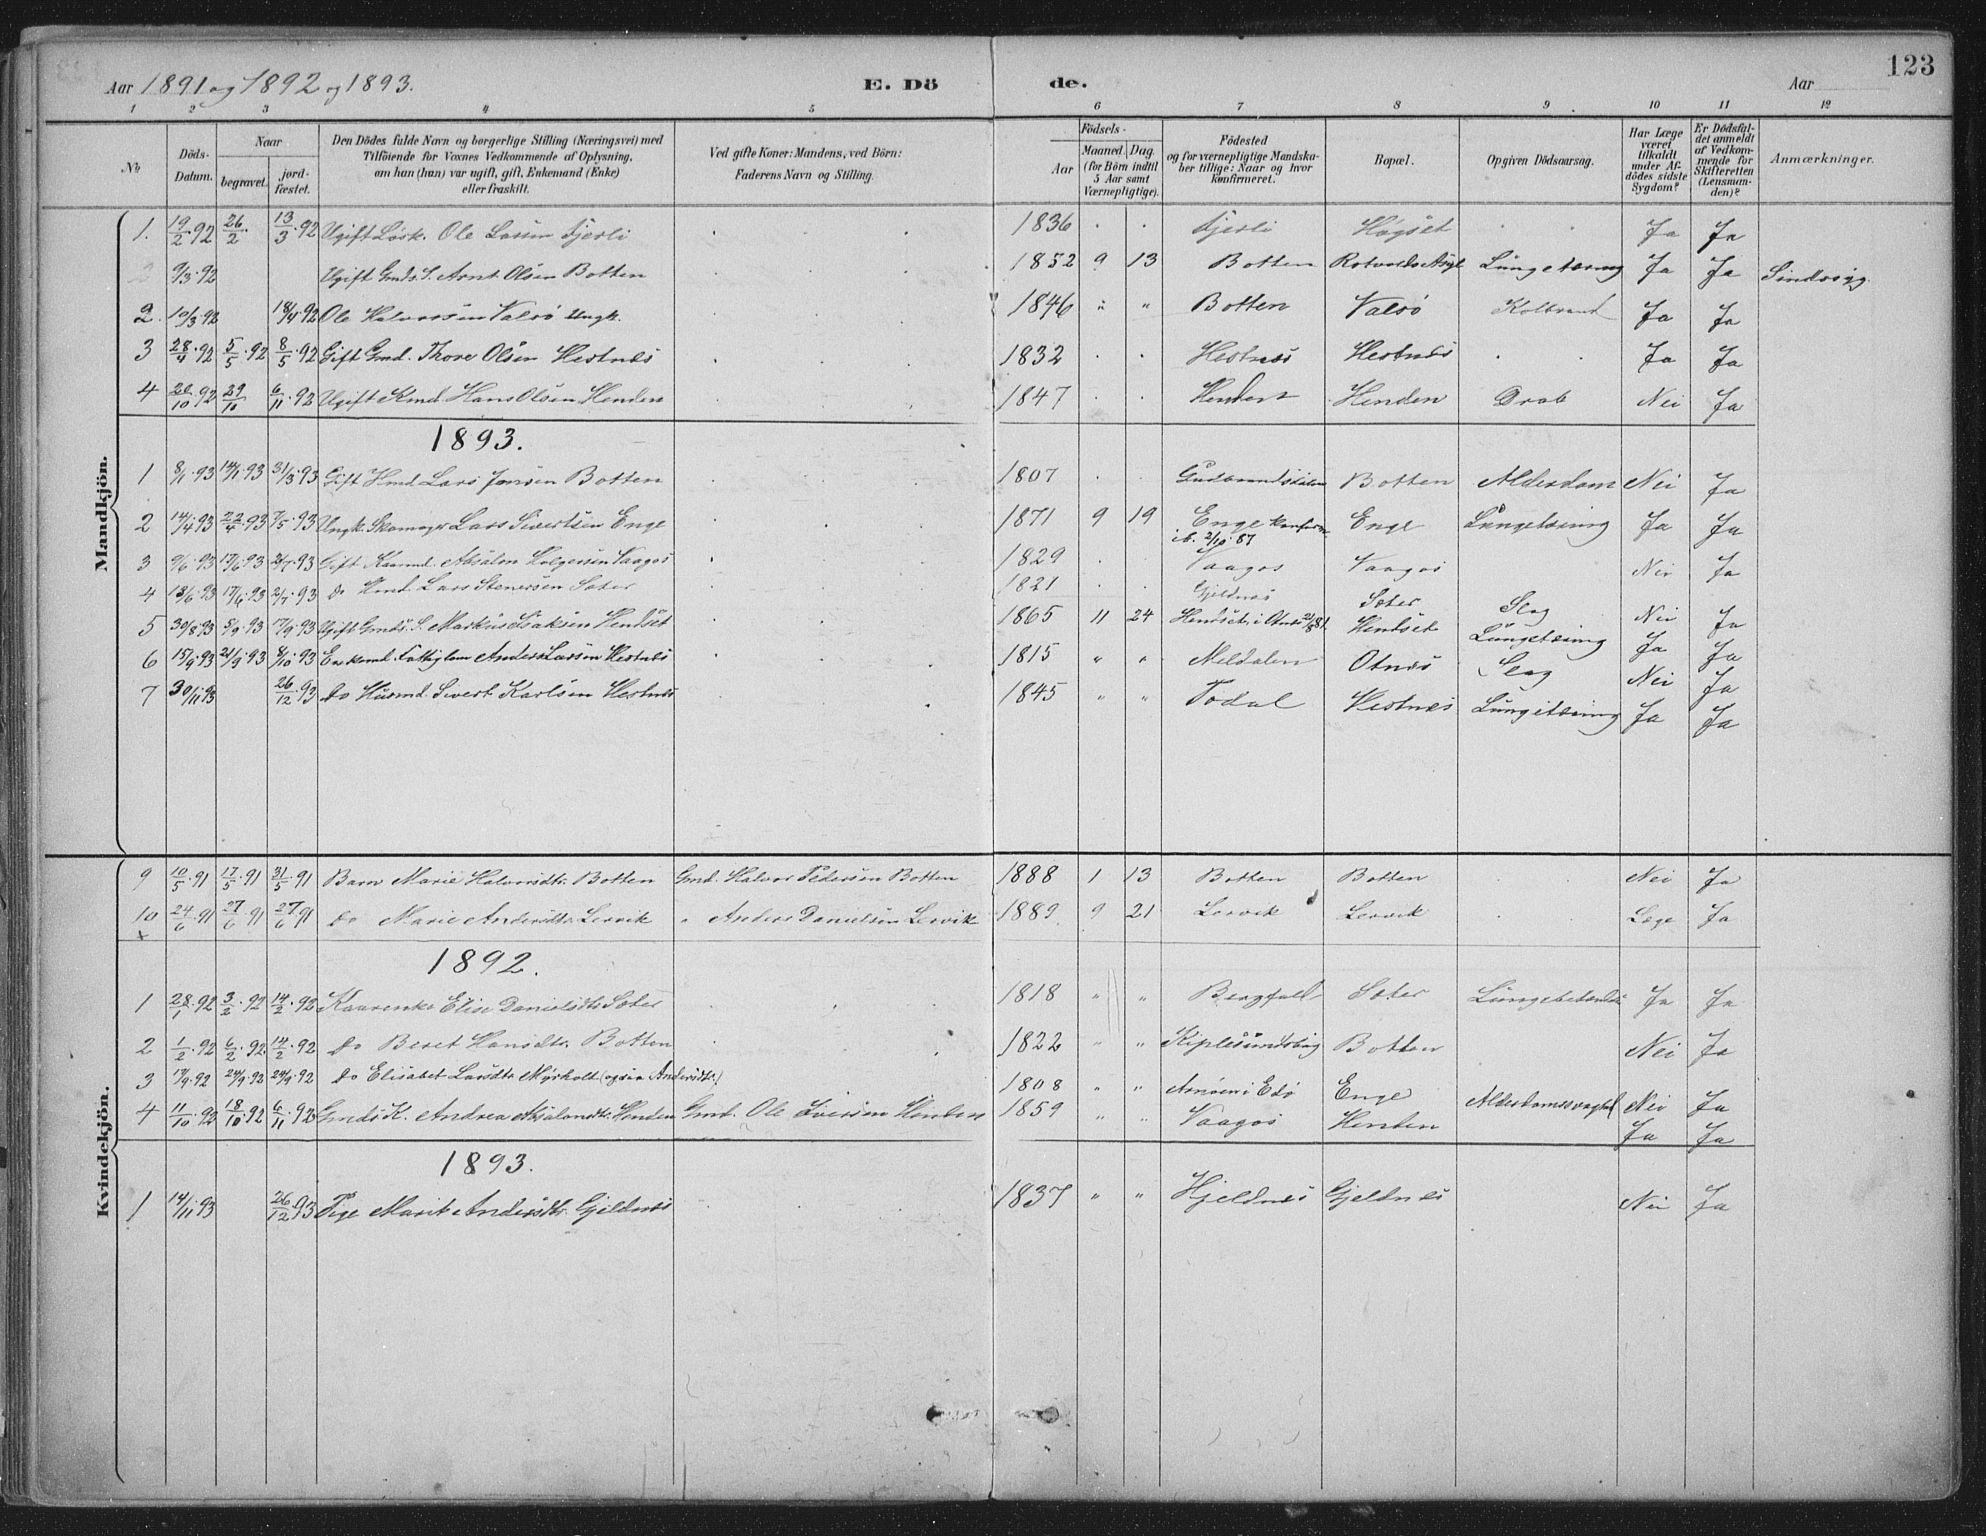 123
Aar 1891 og 1892 og 1893. E. Dö de. Aar
1 2 3 4 5 6 7 8 9 10 11 12
No
Döds-Datum.
Naar
begravet.
jord-fæstet.
Den Dödes fulde Navn og borgerlige Stilling (Næringsvei) med
Tilföiende for Voxnes Vedkommende af Oplysning,
om han (hun) var ugift, gift, Enkemand (Enke)
eller fraskilt.
Ved gifte Koner: Mandens, ved Börn:
Faderens Navn og Stilling.
Födsels-
Aar
Maaned. Dag.
(for Börn indtil
5 Aar samt
Værnepligtige).
Födested
og for værnepligtige Mandska-
ber tillige: Naar og hvor
konfirmeret.
Bopæl.
Opgiven Dödsaarsag.
Har Læge
været
tilkaldt
under Af-
dödes sidste
Sygdom?
Er Dödsfal-
det anmeldt
af Vedkom-
mende for
Skifteretten
(Lensman-
den)?
Anmærkninger.
Mandkjön.
1. 19/2.92 26/2. 13/3.92 Ugift Løsk. Ole Larsen Fjerli 1836 Fjerli Hagset Ja Ja
2 9/3.92 Ugift Gmds S. Arnt Olsen Botten 1852 9 13 Botten Rotvolds Asyl Lungetæring Ja Ja Sindssyg.
2. 10/3.92 18/4.92 Ole Halvorsen Valsø Ungk. 1846 " " Botten Valsø Koldbrand Ja Ja
3 28/4.92 5/5.92 8/5.92 Gift Gmd. Thore Olsen Hestnes 1832 Hestnes Hestnes Ja Ja
4 20/10.92 29/10 6/11.92 Ugift Kmd. Hans Olsen Henden 1847 Henden Henden Drab Nei Ja
1893.
1 8/1.93 14/1.93 31/3.93 Gift Hmd. Lars Jonsen Botten 1807 Gudbrandsdalen Botten Alderdom Nei Ja
2 14/4.93 22/4.93 7/5.93 Ungk. Skomager Lars Sivertsen Enge 1871 9 19 Enge konfirm. ib. 2/10.87 Enge Lungetæring Ja Ja
3 9/6.93 17/6.93 2/7.93 Gift Kaarmd. Absalon Holgersen Vaagos 1829 Vaagos Vaagos Nei Ja
4 13/6.93 17/6.93 2/7.93 Do Hmd. Lars Stenersen Sæter 1821 Gjeldnes Sæter Slag Nei Ja
5 30/8.93 5/9.93 17/9.93 Ugift Gmds. S. Markus Isaksen Hendset 1865 11 24 Hendset i Otnes 21/8 81 Hendset Lungetæring Ja Ja
6 15/9.93 21/9.93 8/10.93 Enkemd. Fattiglem Anders Larsen Hestnes 1815 " " Meldalen Otnes Slag Nei Ja
7 30/11.93 26/12.93 Do Husmd. Sivert Karlsen Hestnes 1845 " " Todal Hestnes Lungetæring Ja Ja
Kvindekjön.
9 10/5.91 17/5.91 31/5.91 Barn Marie Halvorsdtr. Botten Gmd. Halvor Pedersen Botten 1888 1 13 Botten Botten Nei Ja
10 24/6.91 27/6.91 27/6.91 Do Marie Andersdtr. Lervik " Anders Danielsen Lervik 1889 9 21 Lervik Lervik Læge Ja
x
1892.
1 28/1.92 3/2.92 14/2.92 Kaarenke Elise Danielsdtr. Sæter 1818 " " Bergfall Sæter Ja Ja
2 1/2.92 6/2.92 14/2.92 Do Beret Hansdtr. Botten 1822 " " Botten Nei Ja
3 17/9.92 24/9.92 24/9.92 Do Elisabet Larsdtr. Myrholt (ogsaa Andersdtr.) 1808 " " Arnøen i Edø Enge Alderdomssvaghed Nei Ja
4 11/10.92 18/10.92 6/11.92 Gmds K. Andrea Absalonsdtr. Henden Gmd. Ole Iversen Henden 1859 " " Vaagos Henden Ja Ja
1893.
1 14/11.93 26/12.93 Pige Marit Andersdtr. Gjeldnes 1837 " " Hjeldnes Gjeldnes Nei Ja